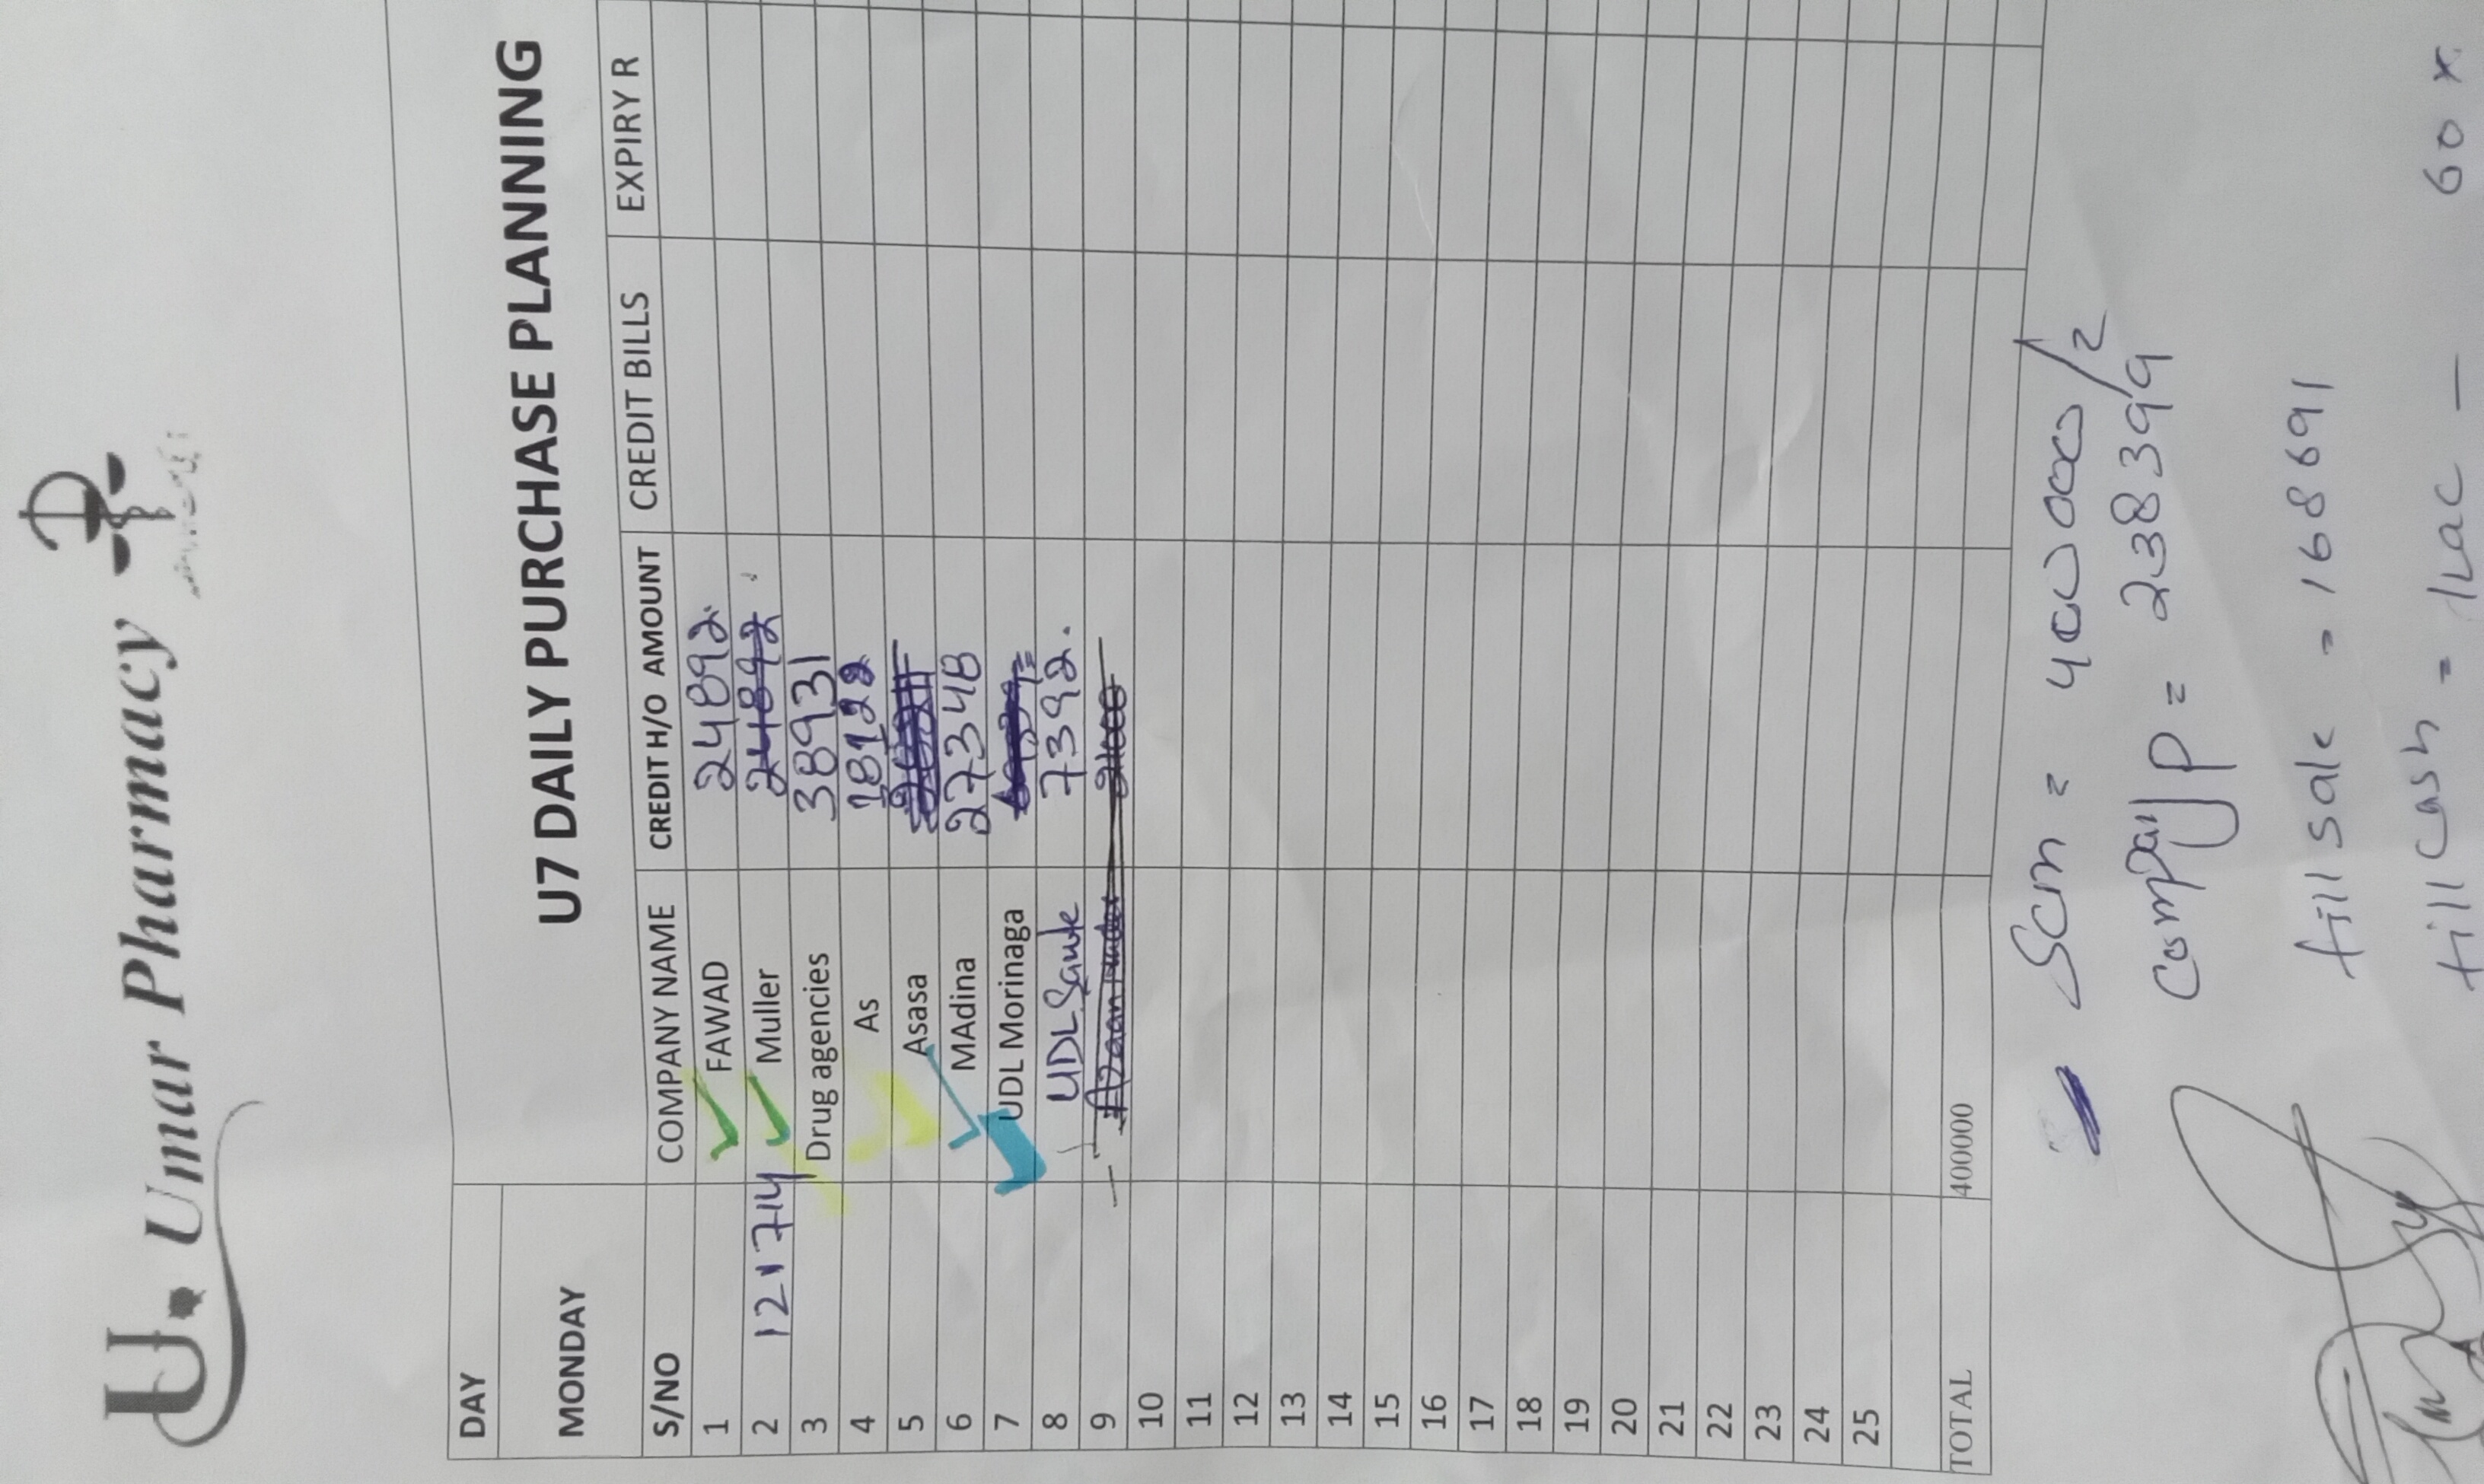 U. Umar Pharmacy
U7 DAILY PURCHASE PLANNING
DAY
MONDAY
S/NO COMPANY NAME CREDIT H/O AMOUNT CREDIT BILLS EXPIRY R
1 FAWAD 24892.
2 121714 Muller 24892
3 Drug agencies 38931
4 As 18122
5 Asasa
6 MAdina 27348
7 UDL Morinaga
8 UDL Saute 7392.
9
10
11
12
13
14
15
16
17
18
19
20
21
22
23
24
25
TOTAL 400000
Scm = 400000/2
Company P = 238399
till sale = 168691
till cash = 1Lac — 60 x